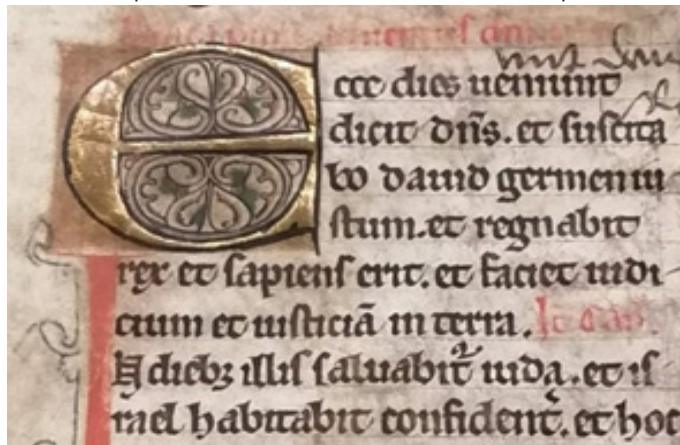 Ecce dies ueniunt
dicit dn̄s. et suscita
bo dauid germen iu
stum. et regnabit
rex et sapiens erit. et faciet iudi
cium et iusticiā in terra.
In diebꝫ illis saluabit᷑ iuda. et is
rael habitabit confident᷑. et hoc